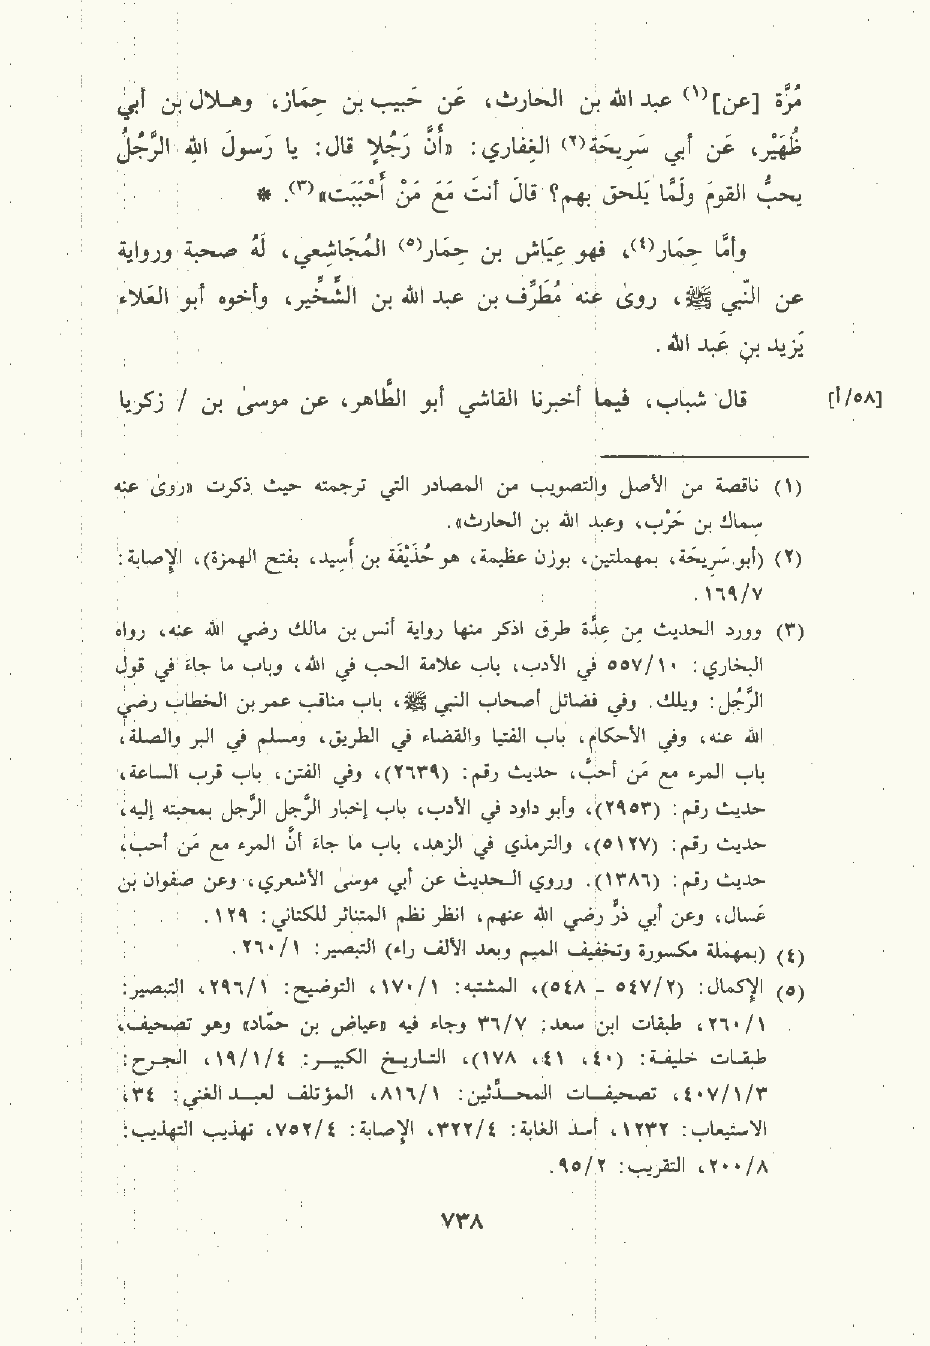 مُرَّة [عن]<sup>(١)</sup> عبد الله بن الحارث، عَن حَبيب بن حِمَاز، وهلال بن أبي
ظُهَيْر، عَن أبي سَرِيحَة<sup>(٢)</sup> الغِفاري: «أَنَّ رَجُلاً قال: يا رَسولَ الله الرَّجُلُ
يحبُّ القومَ ولَمَّا يَلحق بهم؟ قالَ أنتَ مَعَ مَنْ أَحْبَبَت»<sup>(٣)</sup>. *
وأمَّا حِمَار<sup>(٤)</sup>، فهو عِيَاش بن حِمَار<sup>(٥)</sup> المُجَاشِعي، لَهُ صحبة ورواية
عن النَّبي ﷺ، روىٰ عنه مُطَرِّف بن عبد الله بن الشِّخِّير، وأخوه أبو العَلاء
يَزيد بن عَبد الله.
[٥٨/أ] قال شباب، فيما أخبرنا القاشي أبو الطَّاهر، عن موسىٰ بن / زكريا
(١) ناقصة من الأصل والتصويب من المصادر التي ترجمته حيث ذكرت «روىٰ عنه
سِماك بن حَرْب، وعبد الله بن الحارث».
(٢) (أبو سَرِيحَة، بمهملتين، بوزن عظيمة، هو حُذَيْفَة بن أَسِيد، بفتح الهمزة)، الإصابة:
٧/١٦٩.
(٣) وورد الحديث مِن عِدَّة طرق اذكر منها رواية أنس بن مالك رضي الله عنه، رواه
البخاري: ١٠/٥٥٧ في الأدب، باب علامة الحب في الله، وباب ما جاءَ في قول
الرَّجُل: ويلك. وفي فضائل أصحاب النبي ﷺ، باب مناقب عمر بن الخطاب رضي
الله عنه، وفي الأحكام، باب الفتيا والقضاء في الطريق، ومسلم في البر والصلة،
باب المرء مع مَن أحبَّ، حديث رقم: (٢٦٣٩)، وفي الفتن، باب قرب الساعة،
حديث رقم: (٢٩٥٣)، وأبو داود في الأدب، باب إخبار الرَّجل الرَّجل بمحبته إليه،
حديث رقم: (٥١٢٧)، والترمذي في الزهد، باب ما جاءَ أنَّ المرء مع مَن أحب،
حديث رقم: (١٣٨٦). وروي الحديث عن أبي موسىٰ الأشعري، وعن صفوان بن
عَسال، وعن أبي ذَرّ رضي الله عنهم، انظر نظم المتناثر للكتاني: ١٢٩.
(٤) (بمهملة مكسورة وتخفيف الميم وبعد الألف راء) التبصير: ١/٢٦٠.
(٥) الإكمال: (٢/٥٤٧ ـ ٥٤٨)، المشتبه: ١/١٧٠، التوضيح: ١/٢٩٦، التبصير:
١/٢٦٠، طبقات ابن سعد: ٧/٣٦ وجاء فيه «عياض بن حمّاد» وهو تصحيف،
طبقات خليفة: (٤٠، ٤١، ١٧٨)، التاريخ الكبير: ٤/١/١٩، الجرح:
٣/١/٤٠٧، تصحيفات المحدِّثين: ١/٨١٦، المؤتلف لعبد الغني: ٣٤،
الاستيعاب: ١٢٣٢، أسد الغابة: ٤/٣٢٢، الإصابة: ٤/٧٥٢، تهذيب التهذيب:
٨/٢٠٠، التقريب: ٢/٩٥.
٧٣٨